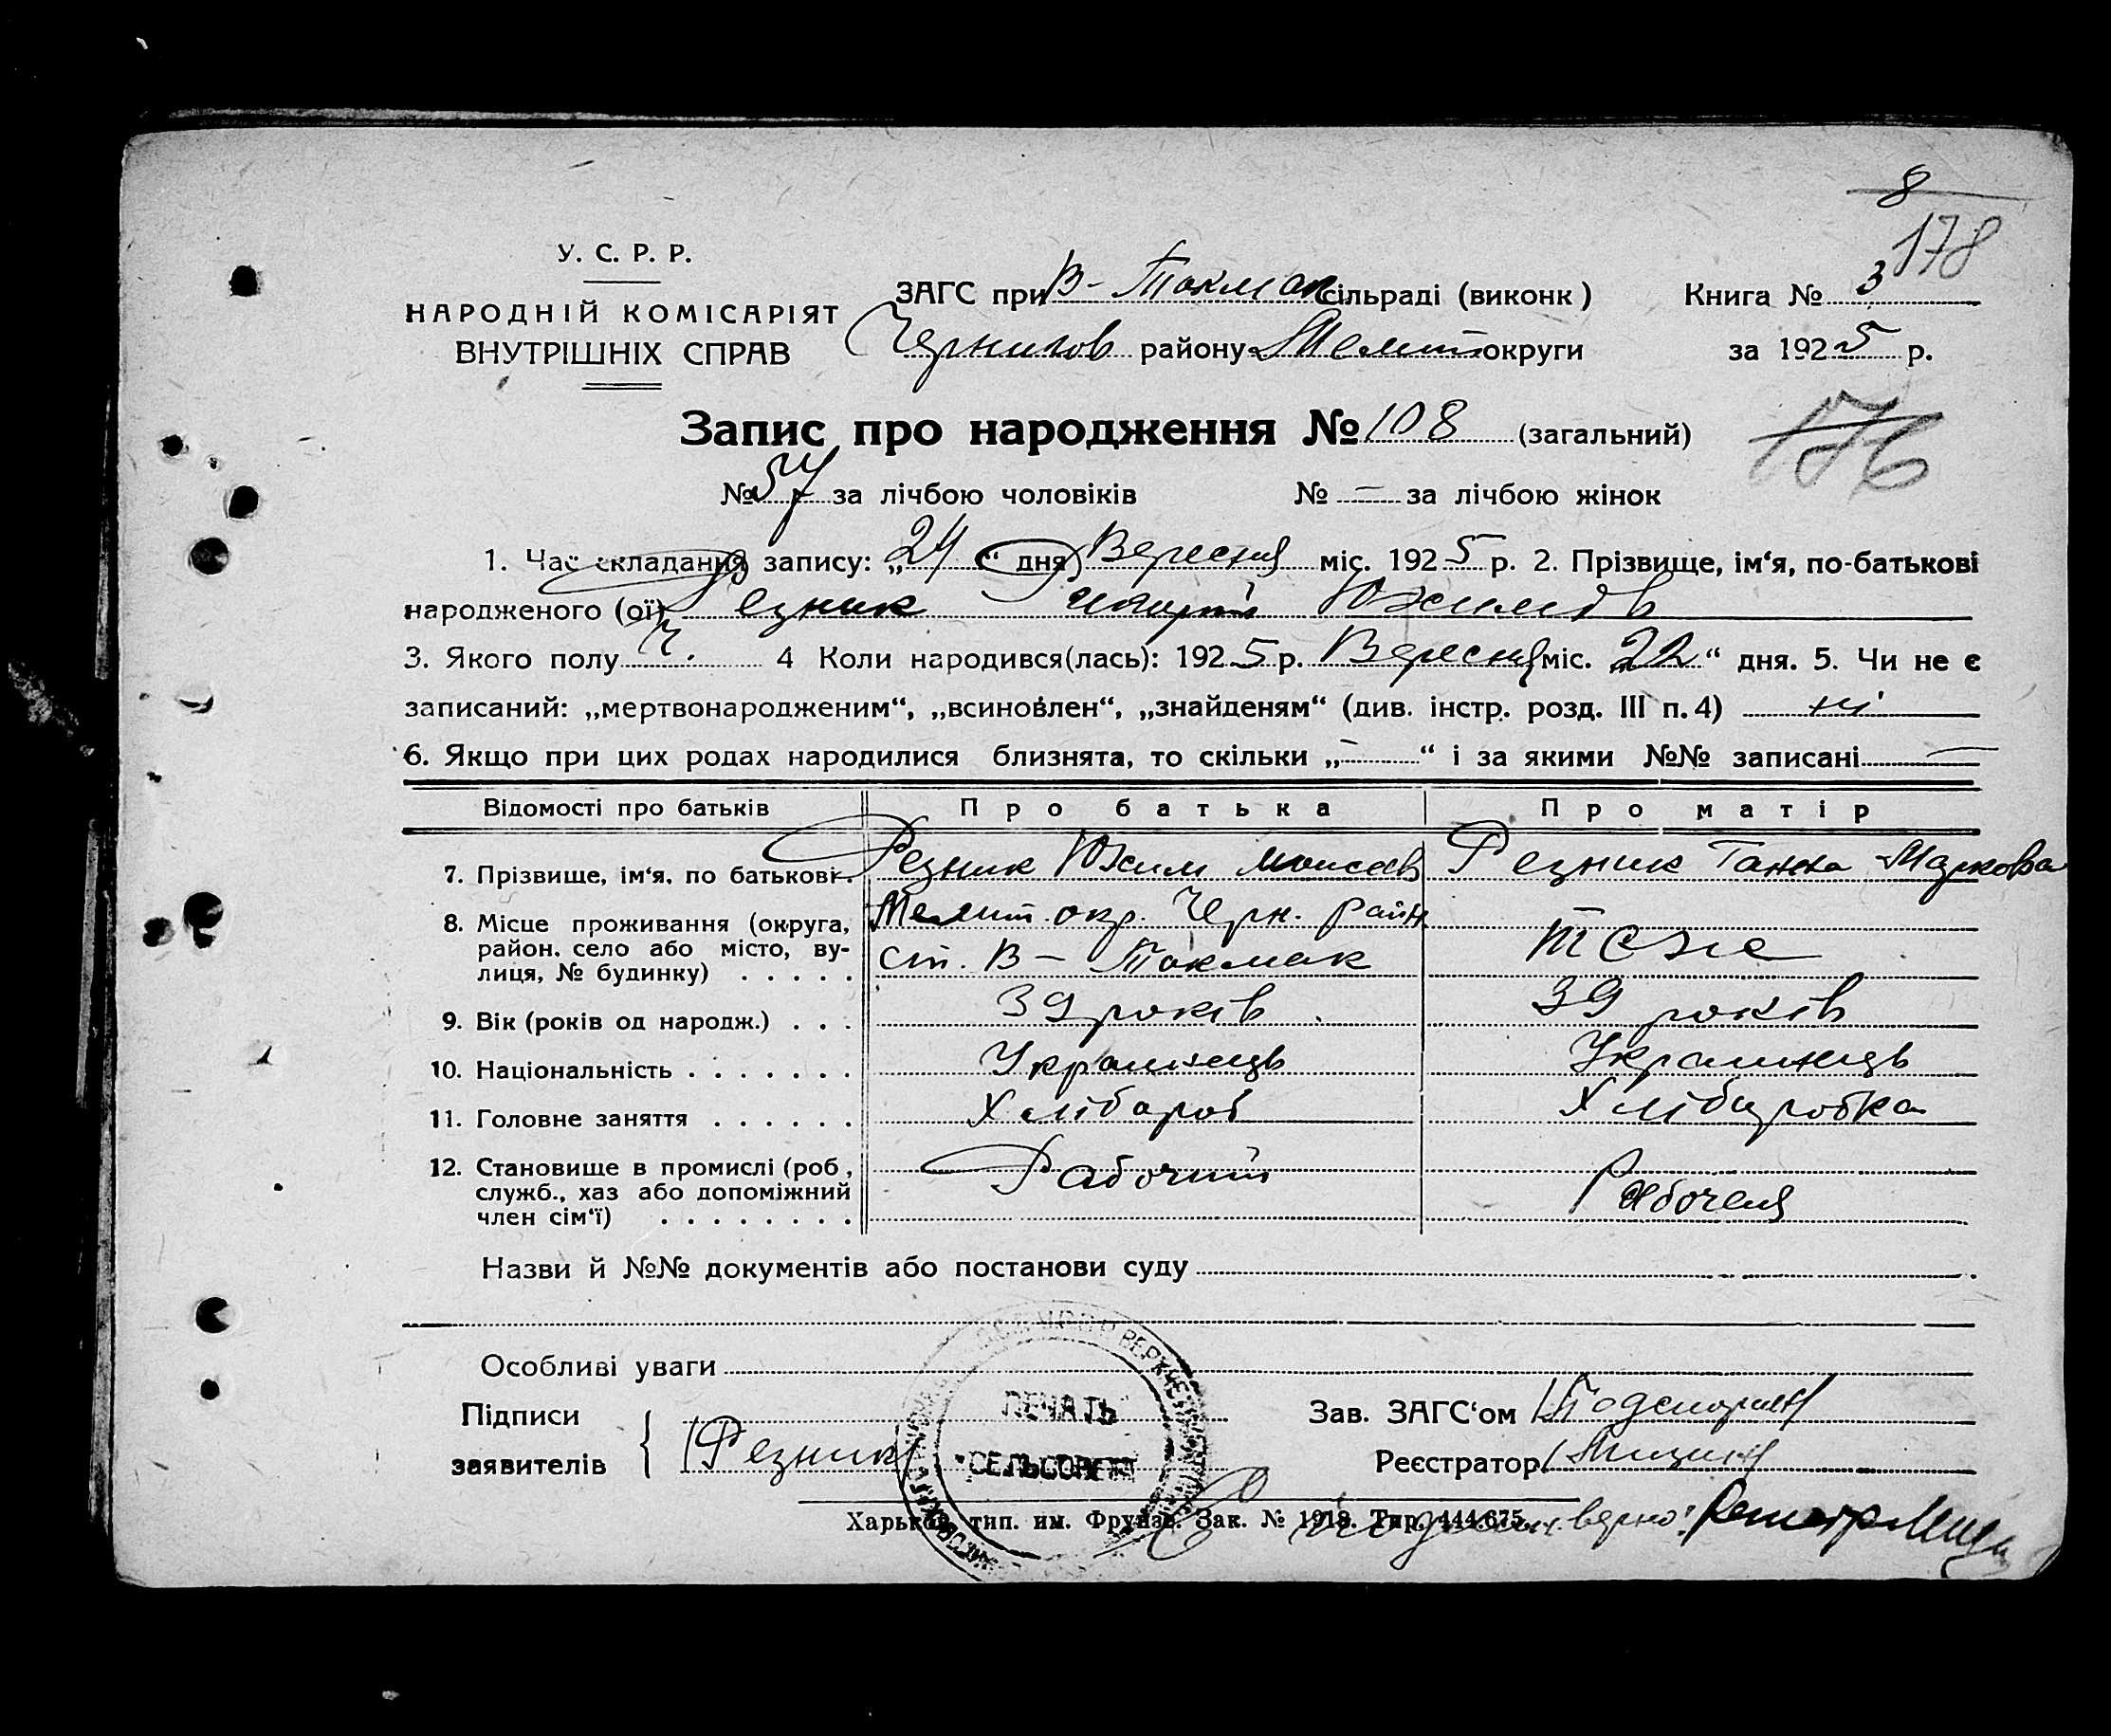 8
178
У. С. Р. Р.
НАРОДНІЙ КОМІСАРІЯТ
ВНУТРІШНІХ СПРАВ
ЗАГС при В-Токмак сільраді (виконк) Книга № 3
Чернигов району Меліт округи за 1925 р.
Запис про народження № 108 (загальний)
176
№ 57 за лічбою чоловіків № — за лічбою жінок
1. Час складання запису: „24“ дня Вересня міс. 1925 р. 2. Прізвище, ім‘я, по-батькові
народженого (ої) Резник Юхимов
3. Якого полу ч. 4 Коли народився(лась): 1925 р. Вересня міс. „22“ дня. 5. Чи не є
записаний: „мертвонародженим“, „всиновлен“, „знайденям“ (див. інстр. розд. III п. 4) ні
6. Якщо при цих родах народилися близнята, то скільки „—“ і за якими №№ записані —
Відомості про батьків Про батька Про матір
7. Прізвище, ім‘я, по батькові. Резник Юхим Моисеев Резник Ганна Маркова
8. Місце проживання (округа, район, село або місто, вулиця, № будинку) . . . . . Мелит. окр. Черн. район ст. В — Токмак тоже
9. Вік (років од народж.) . . . 39 років 39 років
10. Національність . . . . . . . Украинець Украинець
11. Головне заняття . . . . . . Хлібороб Хліборобка
12. Становище в промислі (роб, служб., хаз або допоміжний член сім‘ї) . . . . . . . . Рабочий Рабочая
Назви й №№ документів або постанови суду
Особливі уваги
Підписи
заявителів { Резник
Зав. ЗАГС‘ом
Реєстратор
ПЕЧАТЬ
СЕЛЬСОВЕТА
Харьков, тип. им. Фрунзе. Зак. № 1918. Тир. 444.675.
верно: